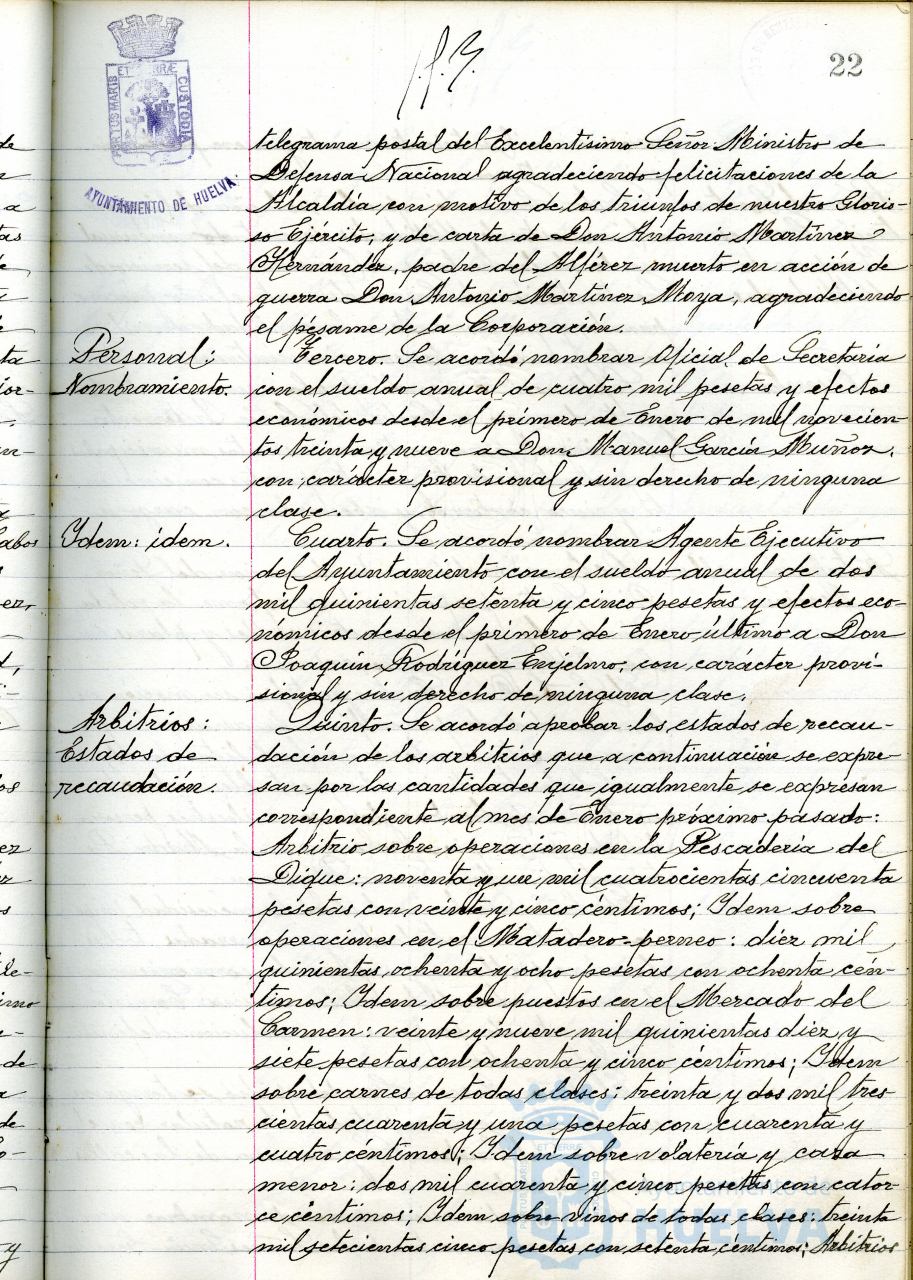 22
PORTUS MARIS ET TERRÆ CUSTODIA
AYUNTAMIENTO DE HUELVA
telegrama postal del Excelentísimo Señor Ministro de
Defensa Nacional agradeciendo felicitaciones de la
Alcaldía con motivo de los triunfos de nuestro Glorio-
so Ejército, y de carta de Don Antonio Martínez
Hernández, padre del Alférez muerto en acción de
guerra Don Antonio Martínez Moya, agradeciendo
el pésame de la Corporación.
Personal:
Nombramiento.
Tercero. Se acordó nombrar Oficial de Secretaría
con el sueldo anual de cuatro mil pesetas y efectos
económicos desde el primero de Enero de mil novecien-
tos treinta y nueve a Don Manuel García Muñoz,
con carácter provisional y sin derecho de ninguna
clase.
Idem: idem.
Cuarto. Se acordó nombrar Agente Ejecutivo
del Ayuntamiento con el sueldo anual de dos
mil quinientas setenta y cinco pesetas y efectos eco-
nómicos desde el primero de Enero último a Don
Joaquín Rodríguez Enjelmo, con carácter provi-
sional y sin derecho de ninguna clase.
Arbitrios:
Estados de
recaudación.
Quinto. Se acordó aprobar los estados de recau-
dación de los arbitrios que a continuación se expre-
san por las cantidades que igualmente se expresan
correspondiente al mes de Enero próximo pasado:
Arbitrio sobre operaciones en la Pescadería del
Dique: noventa y un mil cuatrocientas cincuenta
pesetas con veinte y cinco céntimos; Idem sobre
operaciones en el Matadero-perneo: diez mil
quinientas ochenta y ocho pesetas con ochenta cén-
timos; Idem sobre puestos en el Mercado del
Carmen: veinte y nueve mil quinientas diez y
siete pesetas con ochenta y cinco céntimos; Idem
sobre carnes de todas clases: treinta y dos mil tres-
cientas cuarenta y una pesetas con cuarenta y
cuatro céntimos; Idem sobre volatería y caza
menor: dos mil cuarenta y cinco pesetas con cator-
ce céntimos; Idem sobre vinos de todas clases: treinta
mil setecientas cinco pesetas con setenta céntimos; Arbitrios
Ayuntamiento de
HUELVA